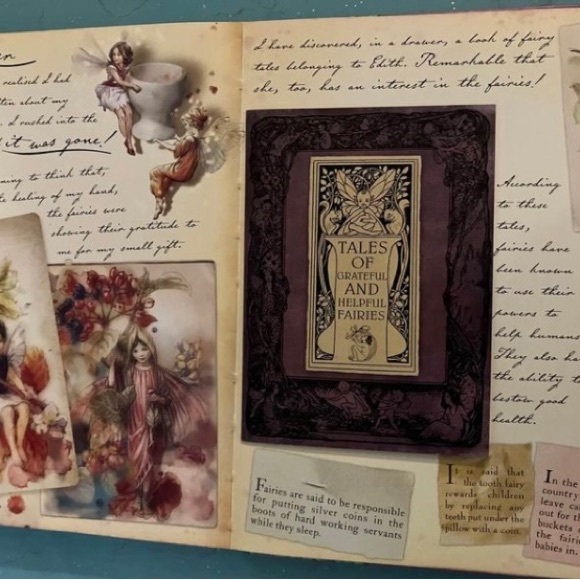 realised I had
about my
I rushed into the
it was gone!
to think that,
healing of my hand,
the fairies were
showing their gratitude to
me for my small gift.
I have discovered, in a drawer, a book of fairy
tales belonging to Edith. Remarkable that
she, too, has an interest in the fairies!
TALES
OF
GRATEFUL
AND
HELPFUL
FAIRIES
According
to these
tales,
fairies have
been known
to use their
powers to
help humans.
They also ha
the ability t
bestow good
health.
Fairies are said to be responsible
for putting silver coins in the
boots of hard working servants
while they sleep.
It is said that
the tooth fairy
rewards children
by replacing any
teeth put under the
pillow with a coin.
In the
country
leave ca
out for th
buckets o
the fairi
babies in.